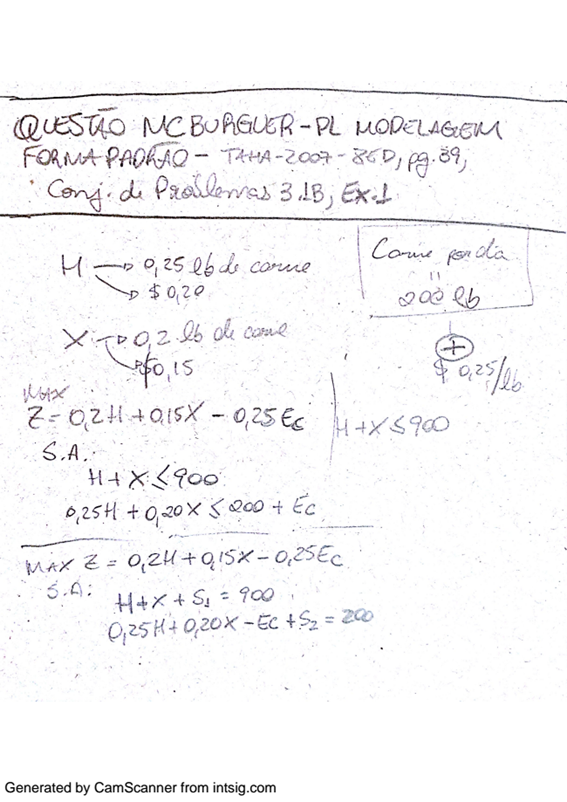 QUESTÃO MCBURGUER - PL MODELAGEM
FORMA PADRÃO - TAHA-2007-8ED, pg. 39,
Conj. de Problemas 3.1B, Ex.1
H → 0,25 lb de carne
→ $ 0,20
X → 0,2 lb de carne
→ $0,15
Carne por dia
=
200 lb
+
$ 0,25/lb
MAX
Z = 0,2H + 0,15X - 0,25Ec
S.A.
H + X ≤ 900
0,25H + 0,20X ≤ 200 + Ec
H + X ≤ 900
MAX Z = 0,2H + 0,15X - 0,25Ec
S.A:
H + X + S₁ = 900
0,25H + 0,20X - Ec + S₂ = 200
Generated by CamScanner from intsig.com